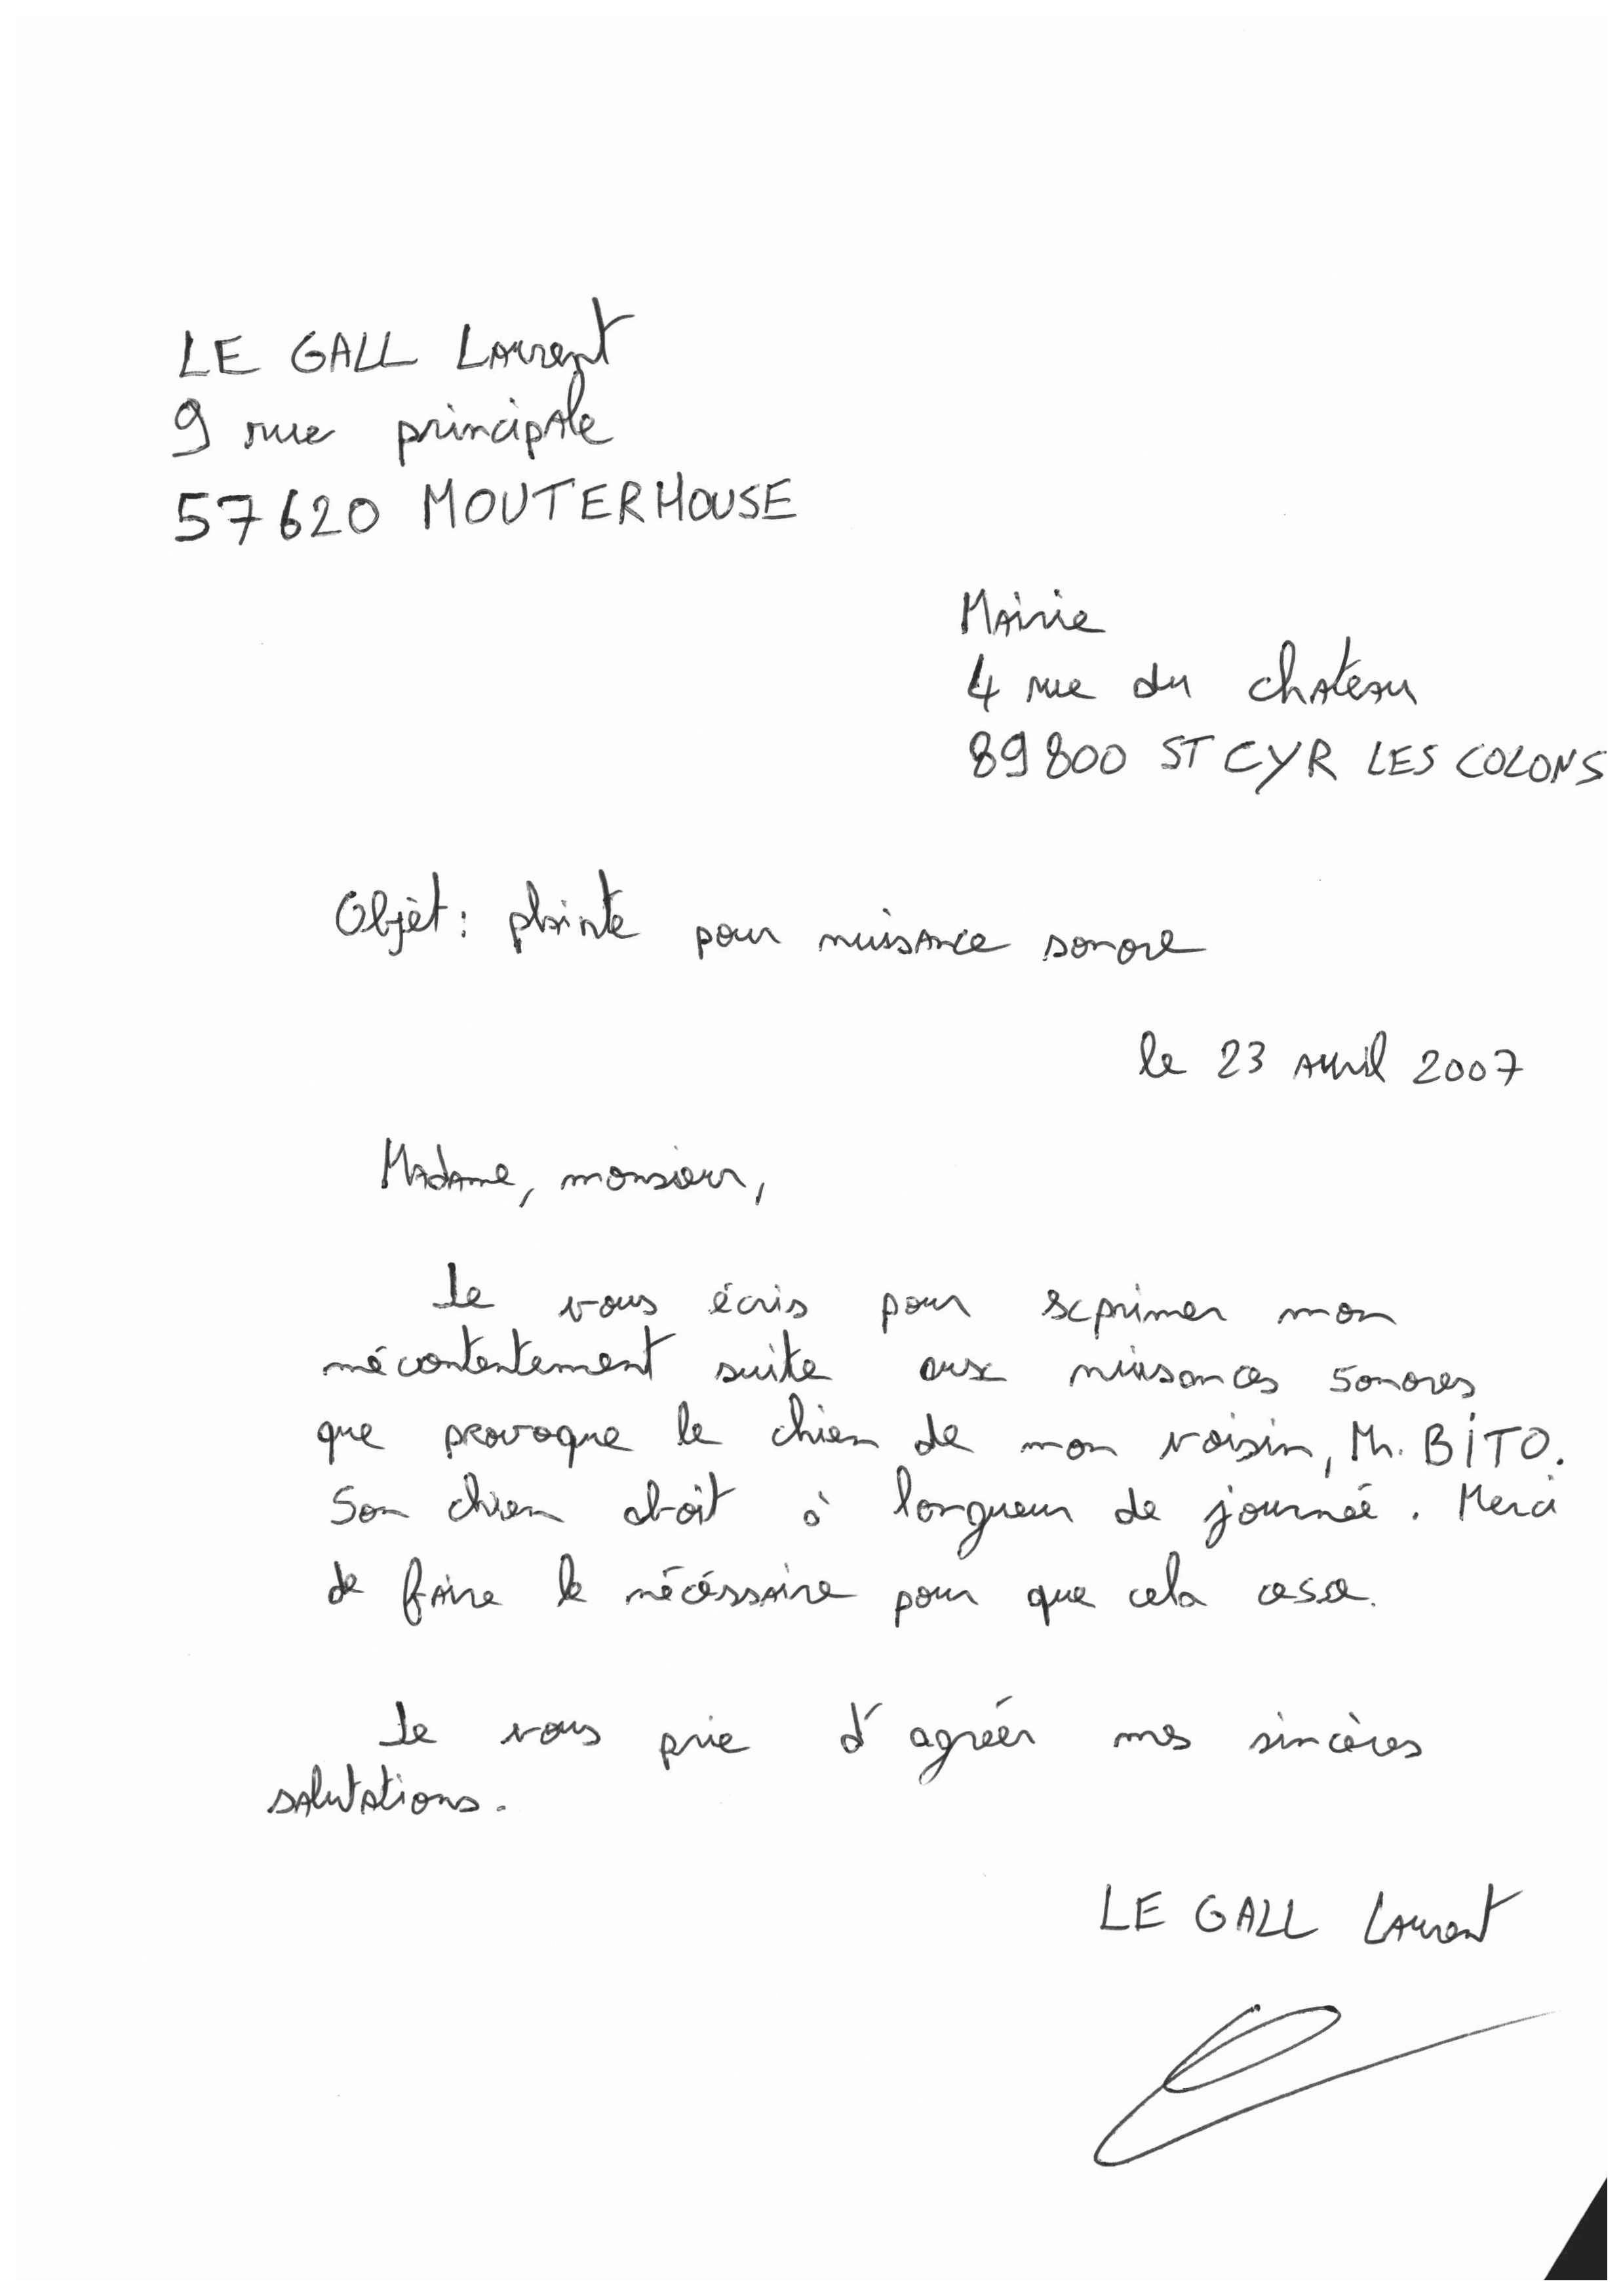 LE GALL Laurent
9 rue principale
57620 MOUTERHOUSE
Mairie
4 rue du chateau
89800 ST CYR LES COLONS
Objèt : plainte pour nuisance sonore
le 23 avril 2007
Madame, monsieur,
Je vous écris pour exprimer mon
mécontentement suite aux nuisances sonores
que provoque le chien de mon voisin, Mr. BITO.
Son chien aboit à longueur de journéé. Merci
de faire le nécéssaire pour que cela cesse.
Je vous prie d'agréér mes sincères
salutations.
LE GALL Laurent